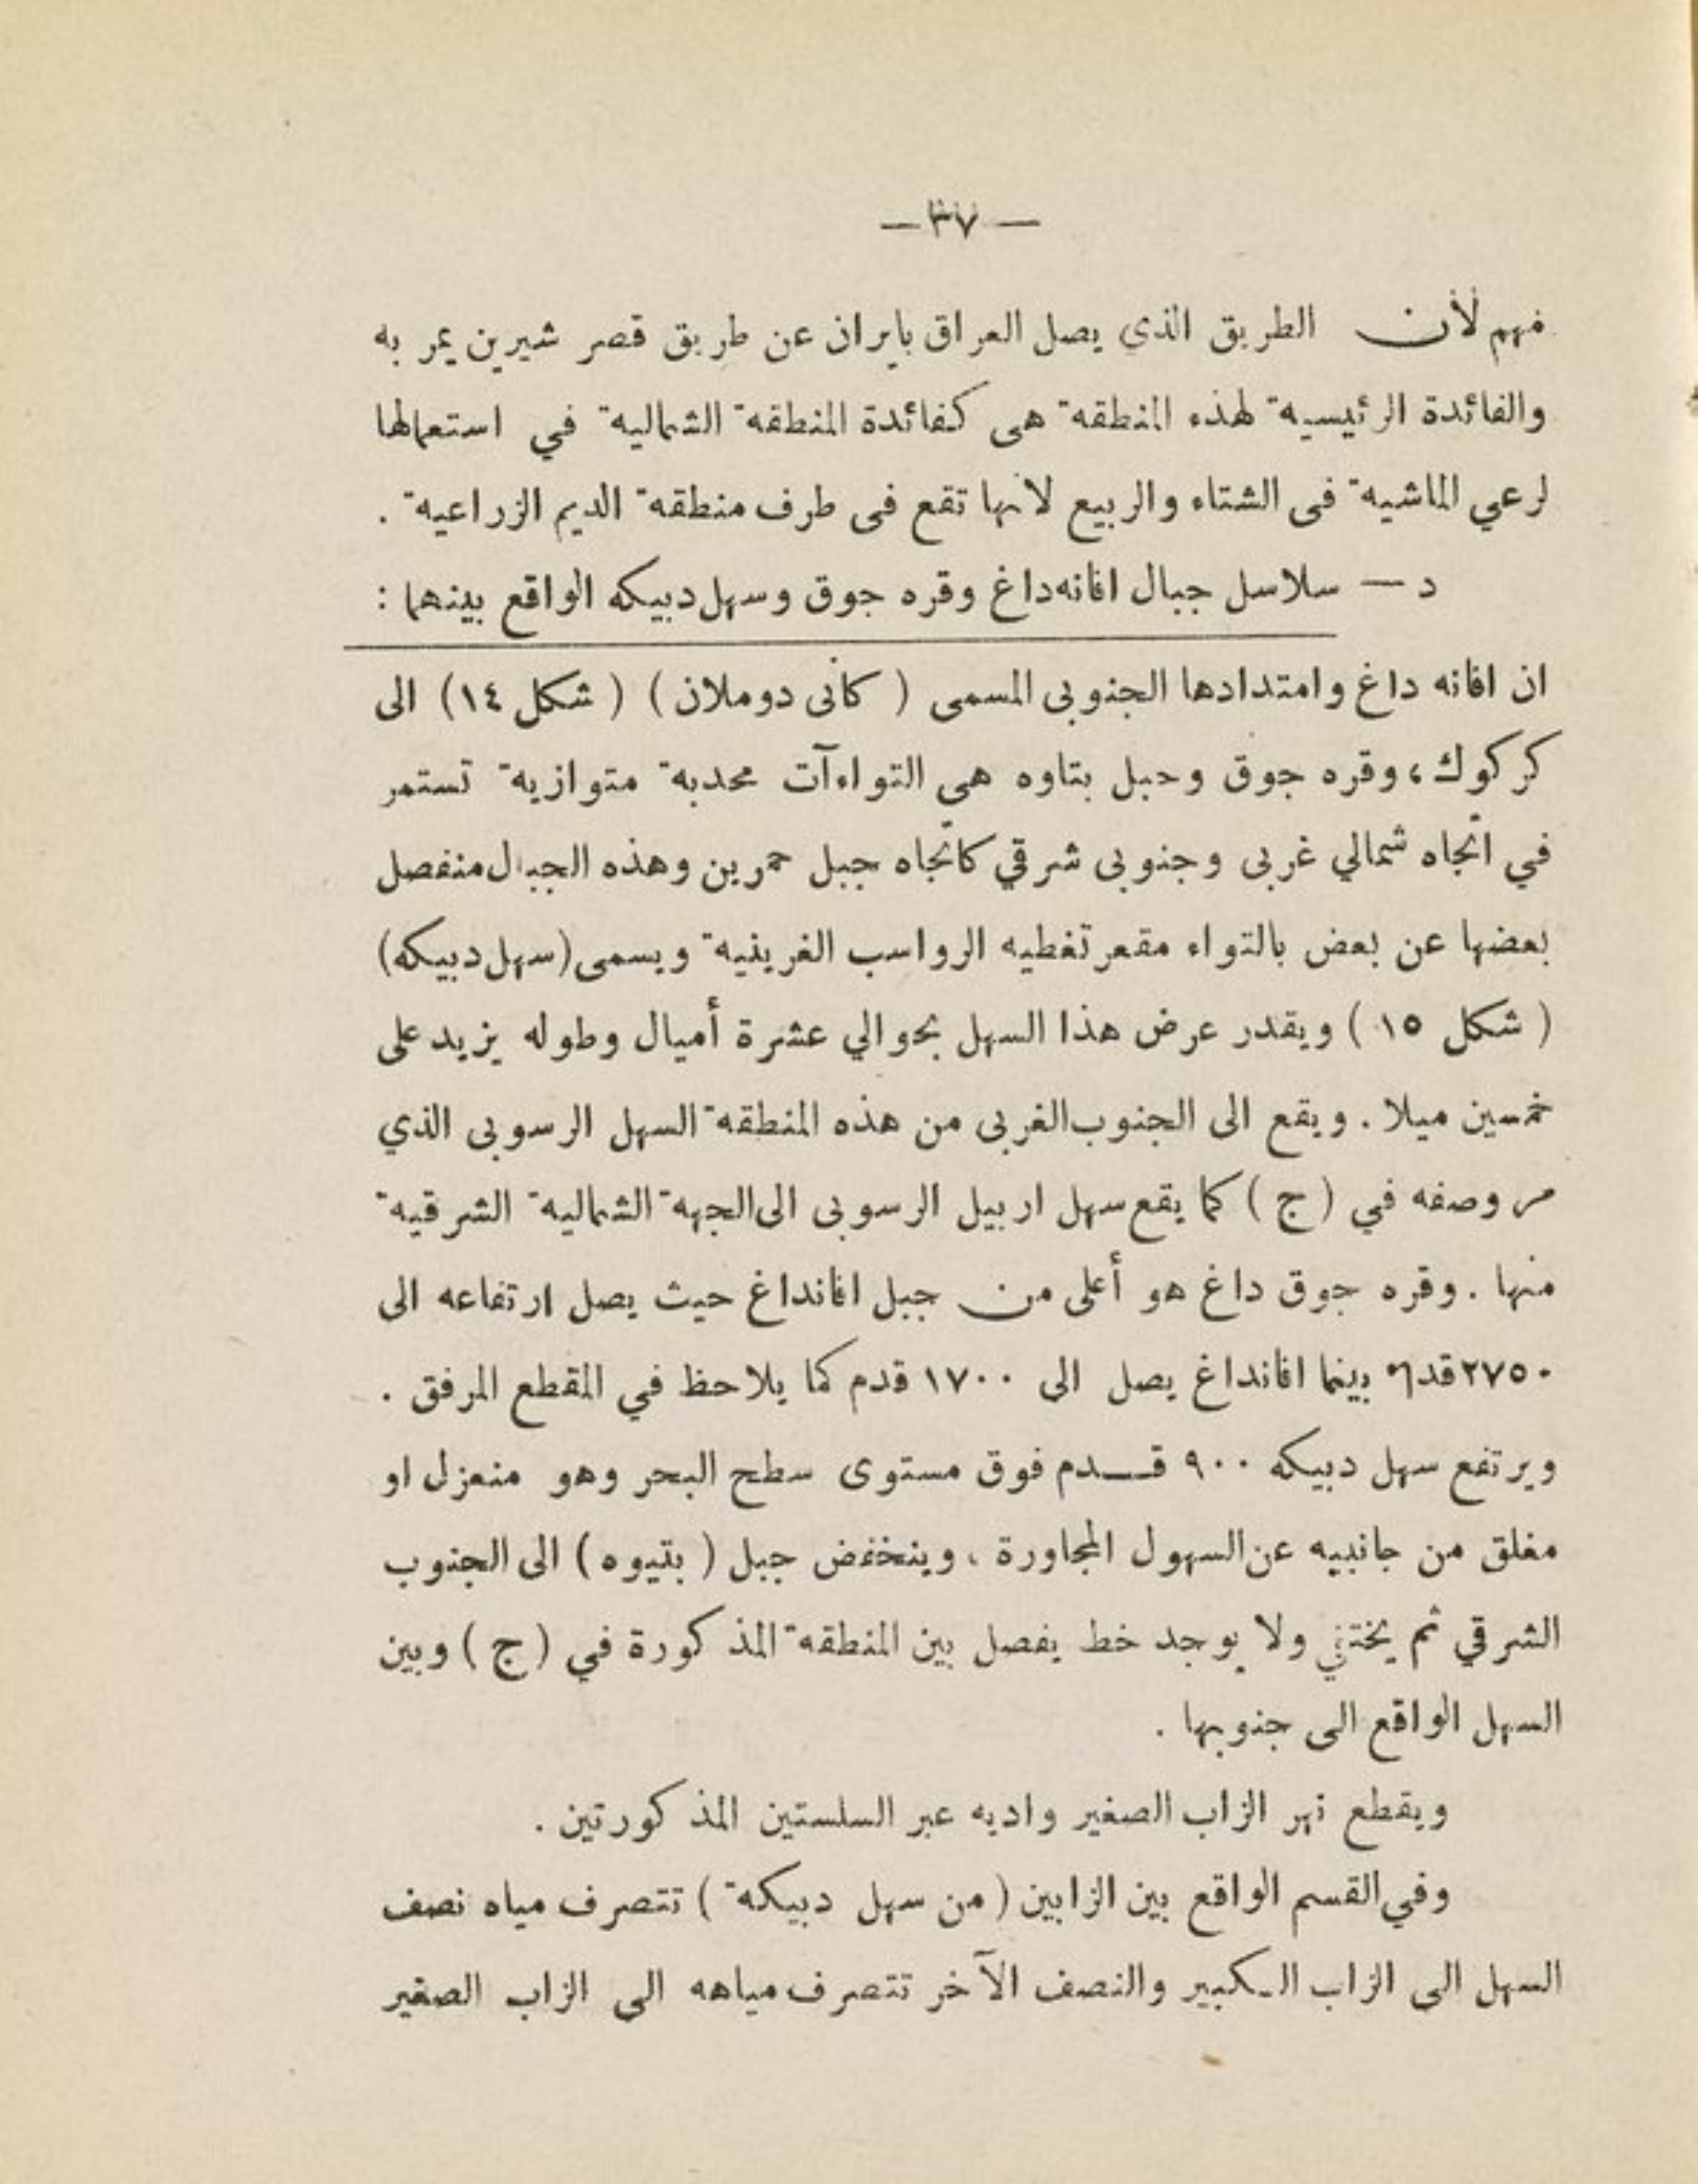 — ٣٧ —
فهم لأن الطريق الذي يصل العراق بايران عن طريق قصر شيرين يمر به
والفائدة الرئيسية لهذه المنطقة هى كفائدة المنطقة الشمالية في استعمالها
لرعي الماشية فى الشتاء والربيع لانها تقع فى طرف منطقة الديم الزراعية .
د — سلاسل جبال افانه داغ وقره جوق وسهل دبيكه الواقع بينهما :
ان افانه داغ وامتدادها الجنوبى المسمى ( كانى دوملان ) ( شكل ١٤) الى
كركوك، وقره جوق وحبل بتاوه هي التواءآت محدبة متوازية تستمر
في اتجاه شمالي غربى وجنوبى شرقي كاتجاه جبل حمرين وهذه الجبال منفصل
بعضها عن بعض بالتواء مقعر تغطيه الرواسب الغرينية ويسمى (سهل دبيكه)
( شكل ١٥ ) ويقدر عرض هذا السهل بحوالي عشرة أميال وطوله يزيد على
خمسين ميلا . ويقع الى الجنوب الغربى من هذه المنطقة السهل الرسوبى الذي
مر وصفه في ( ج ) كما يقع سهل اربيل الرسوبى الى الجهة الشمالية الشرقية
منها . وقره جوق داغ هو أعلى من جبل افانداغ حيث يصل ارتفاعه الى
٢٧٥٠ بينما افانداغ يصل الى ١٧٠٠ قدم كما يلاحظ في المقطع المرفق .
ويرتفع سهل دبيكه ٩٠٠ قـــدم فوق مستوى سطح البحر وهو منعزل او
مغلق من جانبيه عن السهول المجاورة ، وينخفض جبل ( بتيوه ) الى الجنوب
الشرقي ثم يختفي ولا يوجد خط يفصل بين المنطقة المذكورة في ( ج ) وبين
السهل الواقع الى جنوبها .
ويقطع نهر الزاب الصغير واديه عبر السلستين المذكورتين .
وفي القسم الواقع بين الزابين ( من سهل دبيكة ) تتصرف مياه نصف
السهل الى الزاب الـكبير والنصف الآخر تتصرف مياهه الى الزاب الصغير